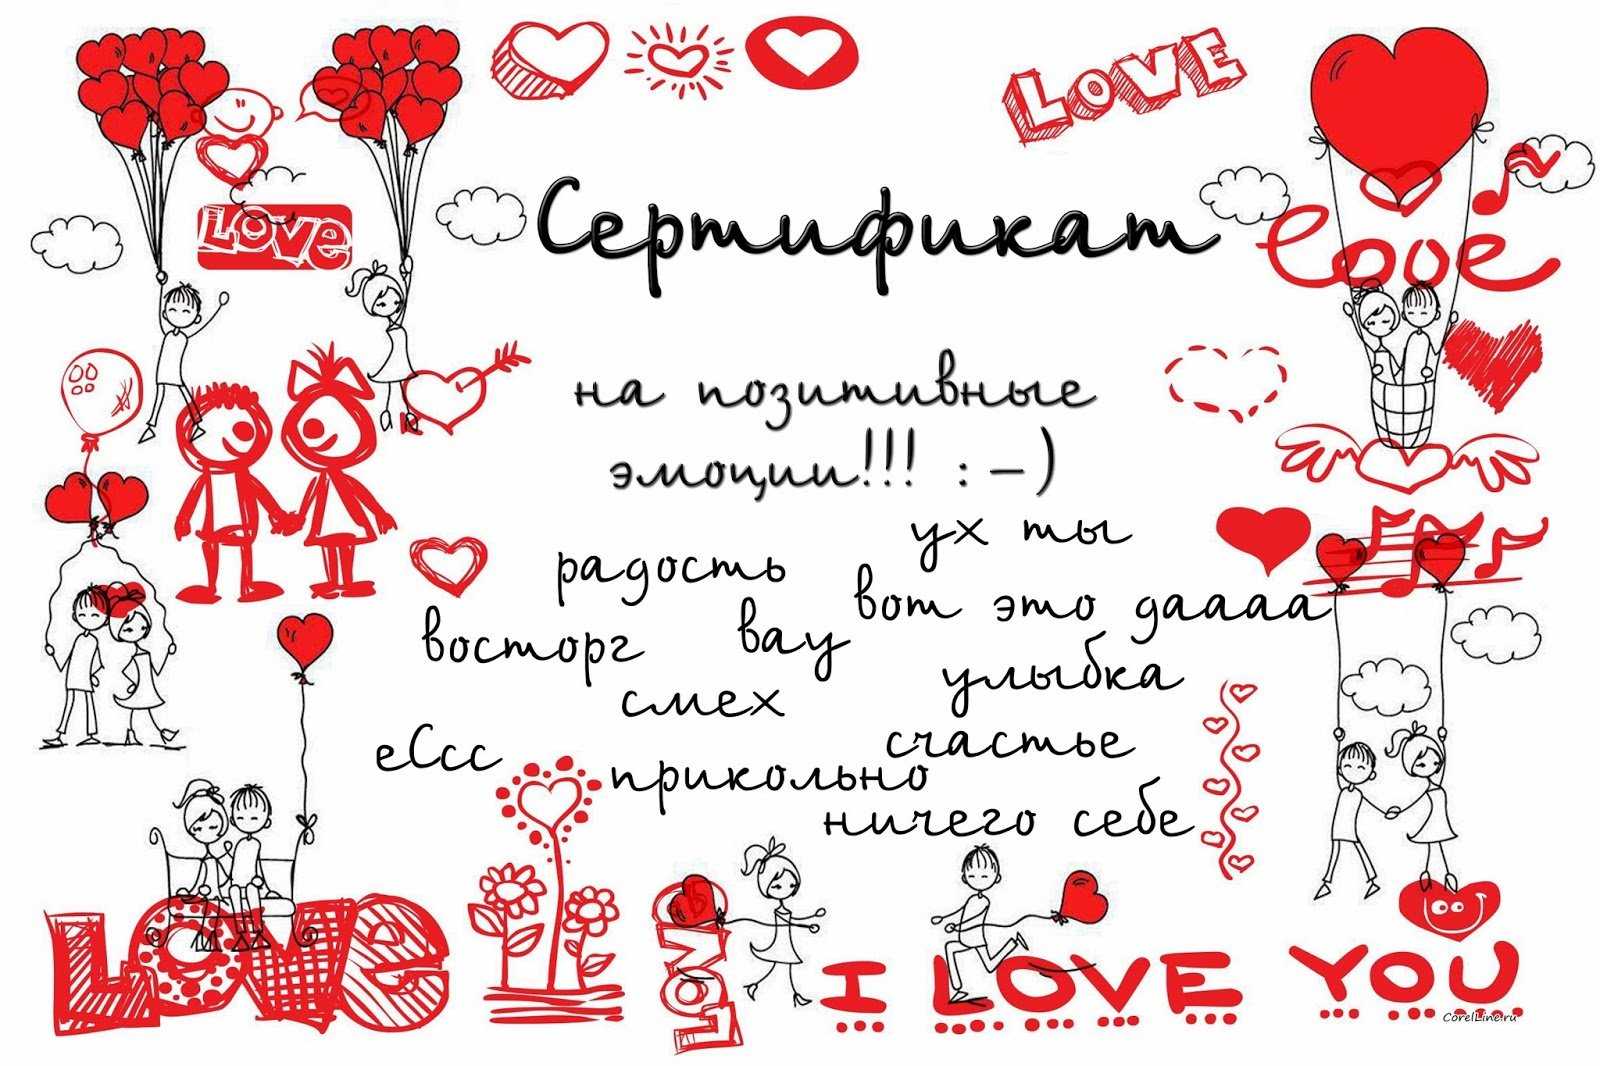 LOVE
LOVE
Сертификат
love
на позитивные
эмоции!!! :-)
ух ты
радость
вот это дааааа
восторг
вау
улыбка
смех
еСсс
счастье
прикольно
ничего себе
LOVE
LOVE
I LOVE YOU
CorelLine.ru